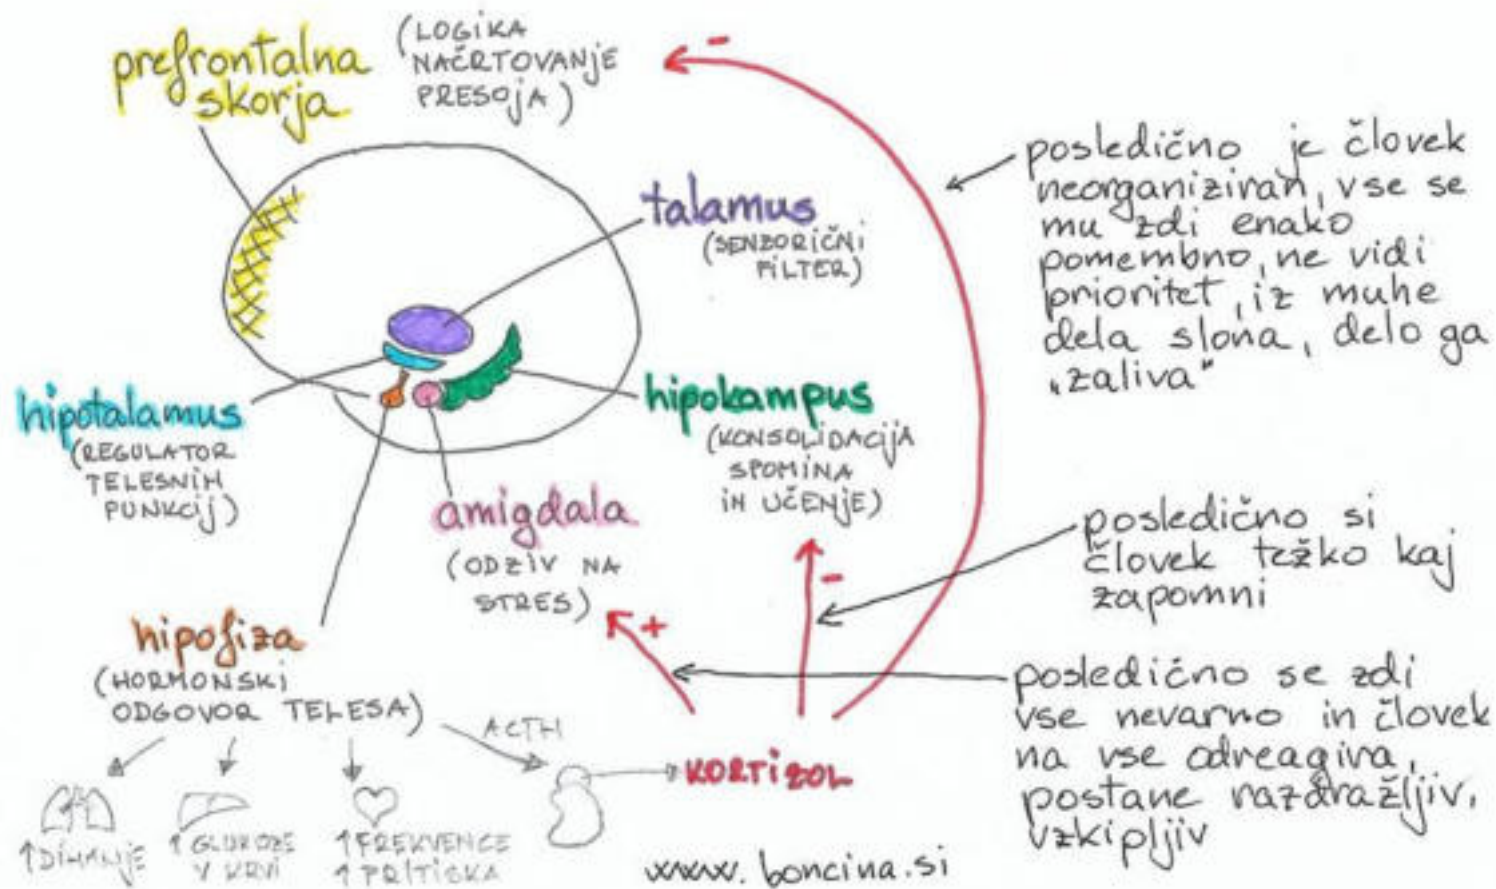 prefrontalna
skorja
(LOGIKA
NAČRTOVANJE
PRESOJA)
talamus
(SENZORIČNI
FILTER)
hipotalamus
(REGULATOR
TELESNIH
FUNKCIJ)
hipokampus
(KONSOLIDACIJA
SPOMINA
IN UČENJE)
amigdala
(ODZIV NA
STRES)
hipofiza
(HORMONSKI
ODGOVOR TELESA)
ACTH
KORTIZOL
-
-
+
↑DIHANJE
↑GLUKOZE
V KRVI
↑FREKVENCE
↑PRITISKA
posledično je človek
neorganiziran, vse se
mu zdi enako
pomembno, ne vidi
prioritet, iz muhe
dela slona, delo ga
„zaliva"
posledično si
človek težko kaj
zapomni
posledično se zdi
vse nevarno in človek
na vse odreagira,
postane razdražljiv,
vzkipljiv
www.boncina.si